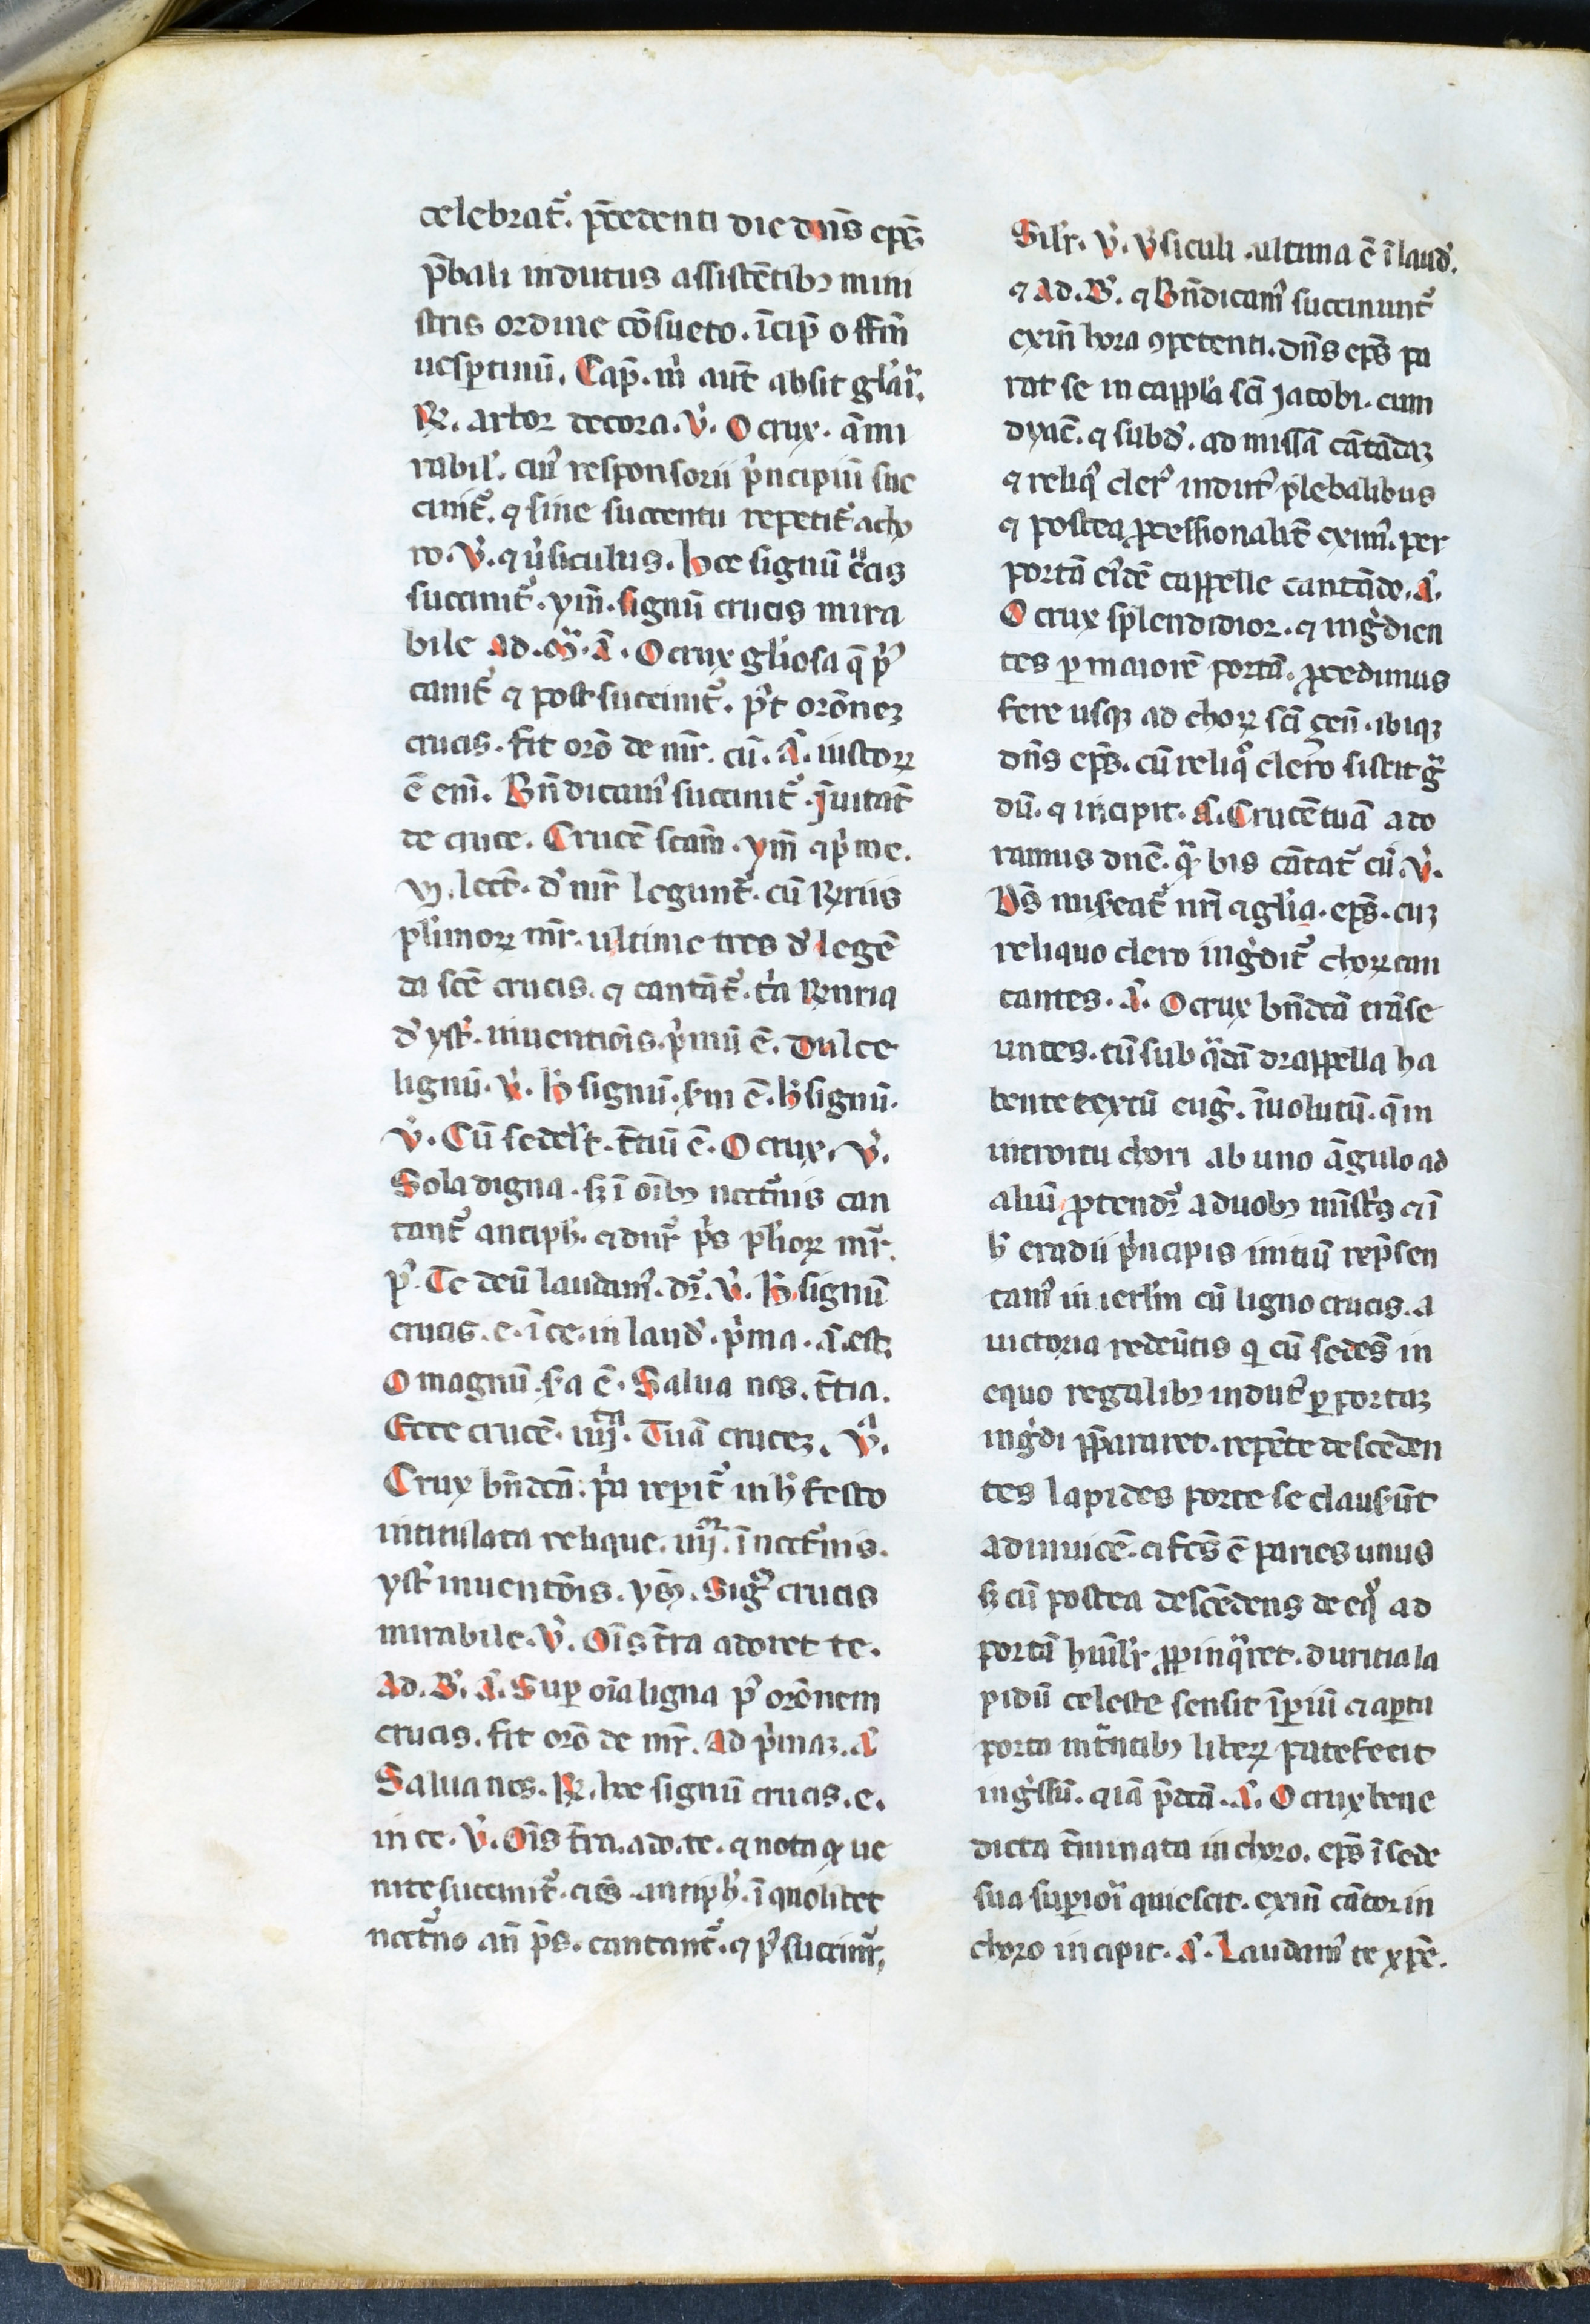 celebrat᷑. p̄cedenti die dn̄s ep̄s
p̄bali indutus assistētibꝫ mini
stris ordine cōsueto. īcip̄ offm̄
uesꝑtinū. Cap̄. m̓ aut̄ absit gl̓ai̓.
R̷. arbor decora. v̓. O crux. ām̄i
rabil̓. cui̓ responsorii p̓ncipiū suc
cinit᷑. ⁊ sine succentu repetit᷑ acho
ro. v̓. ⁊ v̓siculus. hoc signū c̓cis
succinit᷑. ym̄. signū crucis mira
bile ad. m̓. a̓. O crux gl̓iosa q̄ p̓
canit᷑ ⁊ post succinit᷑. p̓t orōneꝫ
crucis. fit orō de mr̄. cū. a̓. iustoꝝ
ē eni̓. Bn̄dicam̓ succinit᷑. Juitat̄
de cruce. Crucē scam̄. ym̄ ⁊ p̓me.
vj. lect̄. d̓ mr̄ legunt᷑. cū R̷riis
pl̓imoꝝ mr̄. ultime tres d̓ legē
da sc̄e crucis. ⁊ cantāt᷑. t̓a R̷nria
d̓ yst̓. inuentiōis. p̓mū ē. Dulce
lignū. v̓. h̓ signū. s̓m ē. h̓ signū.
v̓. Cū sedel̓t. t̄tiū ē. O crux. v̓.
Sola digna. sꝫ ī oībꝫ noct̓nis can
tant᷑ antiph̓. ⁊ dnr̄ p̓s pl̓ioꝝ mr̄.
p̓. Te deū laudam̓. dr̄. v̓. h̓ signū
crucis. e. ī ce. in laud̓. p̓ma. a̓. est.
O magnū. s̓a ē. Salua nos. t̄tia.
Ecce crucē. iiij ta. Tuā cruceꝫ. v̓.
Crux bn̄dcā. p̓a reꝑit᷑ in h̓ festo
intitulata relique. iiij or. ī noct̓nis.
yst̓ inuentōis. ys̄. Sig̓ crucis
mirabile. v̓. Oīs t̄ra adoret te.
Ad. B̓. a̓. Suꝑ oīa ligna p̓ orōnem
crucis. fit orō de mr̄. Ad p̓maꝫ. a̓
Salua nos. R̷. hoc signū crucis. e.
in ce. v̓. Oīs t̄ra. ado. te. ⁊ nota ꝙ ue
nite succinit᷑. ⁊ es̄ antiph̓. ī quolibet
noct̓no an̄ p̄s. cantant᷑. ⁊ p̓ succinr̄,
Silr̄. v̓. v̓siculi. ultima ē ī laud̓.
⁊ Ad. B̓. ⁊ Bn̄dicam̓ succinunt᷑
exin̄ hora ꝯpetenti. dn̄s ep̄s pa
rat se in cappl̓a sc̄i Jacobi. cum
dyac̄. ⁊ subd̓. ad missā cātādaꝫ
⁊ reliq̓ cler̓ indut̓ p̓lebalibus
⁊ postea ꝓcessionalit̄ exim̓. per
portā eid̓ē cappelle cantādo. a̓.
O crux splendidior. ⁊ ing̓dien
tes ꝑ maiorē portā. ꝓcedimus
fere usqꝫ ad choꝝ sc̄i cen̄. ibiqꝫ
dn̄s ep̄s. cū reliq̊ clero sistit g̓
dū. ⁊ incipit. a̓. Crucē tuā ado
ramus dnē. q̓ bis cātat᷑ cū. v̓.
Ds̄ misʼeat᷑ nr̄i ⁊ gl̓ia. ep̄s. cuꝫ
reliquo clero ing̓dit᷑ choꝝ can
tantes. a̓. O crux bn̄dcā trāse
untes. tū sub q̓dā drappella ha
bente textū eug̓. īuolutū. q̄ in
introitu chori ab uno āgulo ad
aliū ꝓtendr̄ a duobꝫ mīst̓s ⁊ ī
h̓ eradii p̓ncipis initiū rep̄sen
tam̓ in ierl̓m cū ligno crucis. a
uictoria redeūtis q̄ cū sedēs in
equo regalibꝫ indut̓ ꝑ portaꝫ
ing̓di p̄pararet. repēte descēden
tes lapides porte se clausʼūt
adinuicē. ⁊ fc̄s ē paries unus
sꝫ cū postea descēdens de eq̊ ad
portā huīlr̄ ꝓpinq̓ret. duritia la
pidū celeste sensit īꝑiū ⁊ aꝑta
porta int̓ntibꝫ libeꝝ patefecit
ing̓ssū. ⁊ iā p̄dcā. a̓. O crux bene
dicta t̄minata in choro. ep̄s ī sede
sua suꝑiori quiescit. exin̄ cātor in
choro incipit. a̓. Laudam̓ te xp̄e.